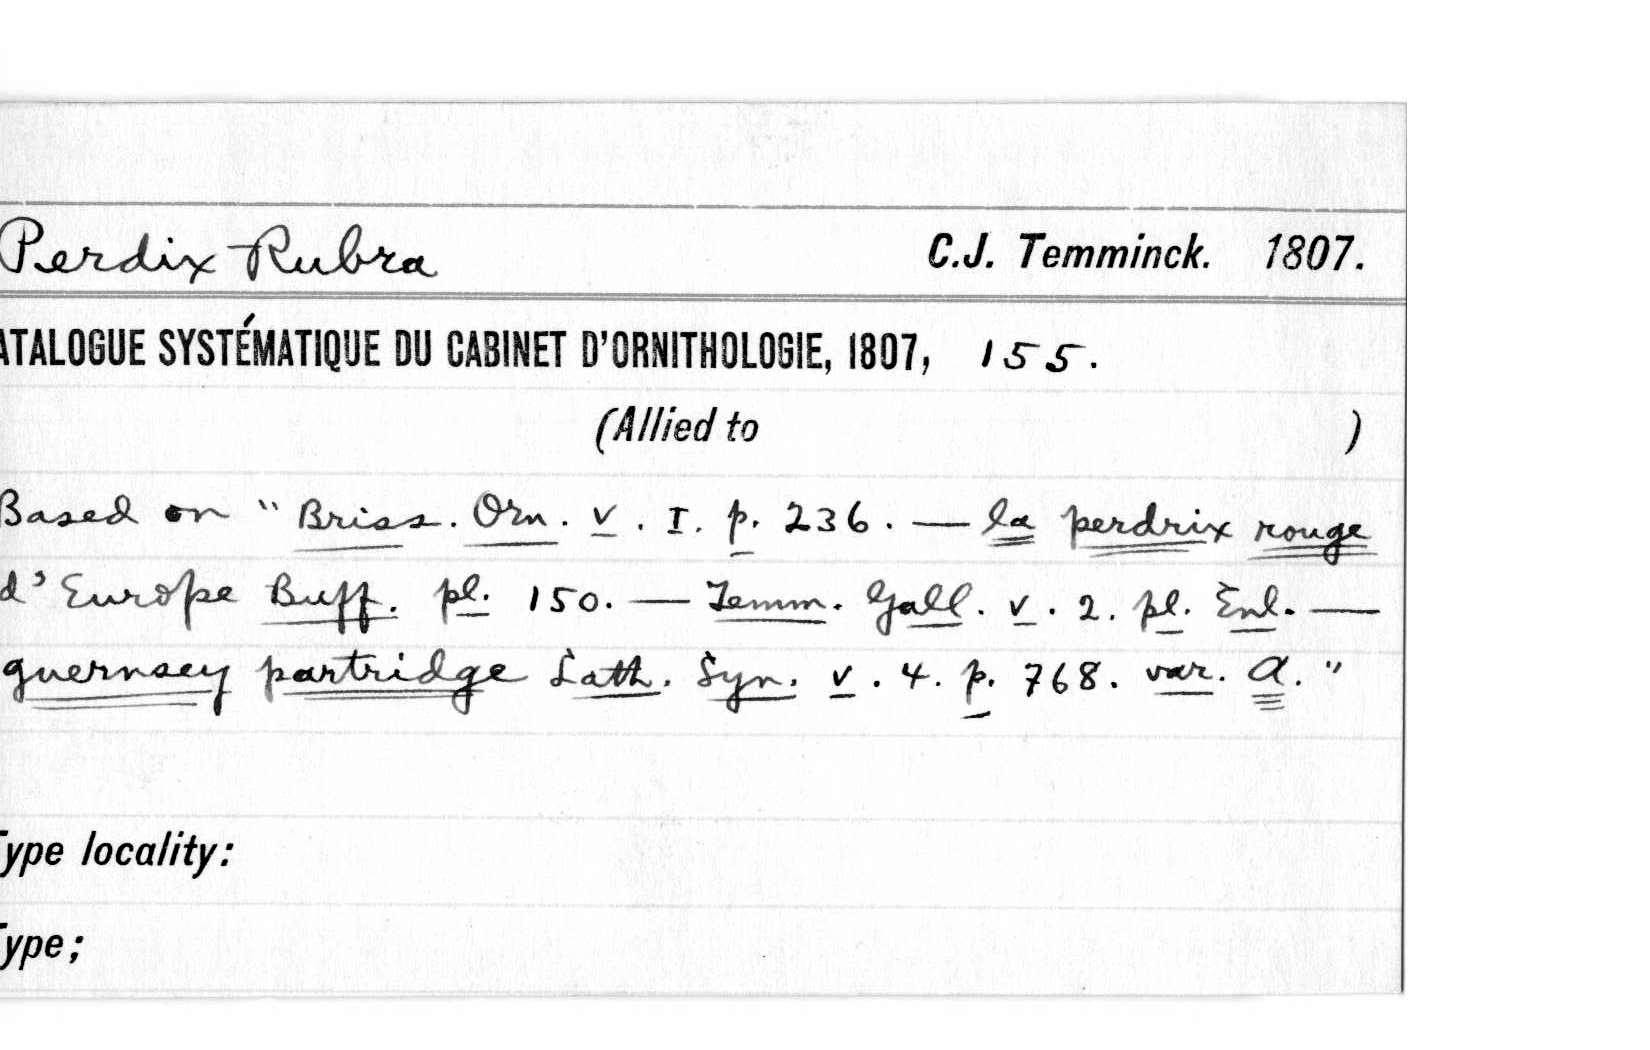 Perdix Rubra C.J. Temminck. 1807.
ATALOGUE SYSTÉMATIQUE DU CABINET D'ORNITHOLOGIE, 1807, 155.
(Allied to )
Based on "Briss. Orn. v. I. p. 236. — la perdrix rouge
d'Europe Buff. pl. 150. — Temm. Gall. v. 2. pl. Enl. —
guernsey partridge Lath. Syn. v. 4. p. 768. var. A."
Type locality:
Type;